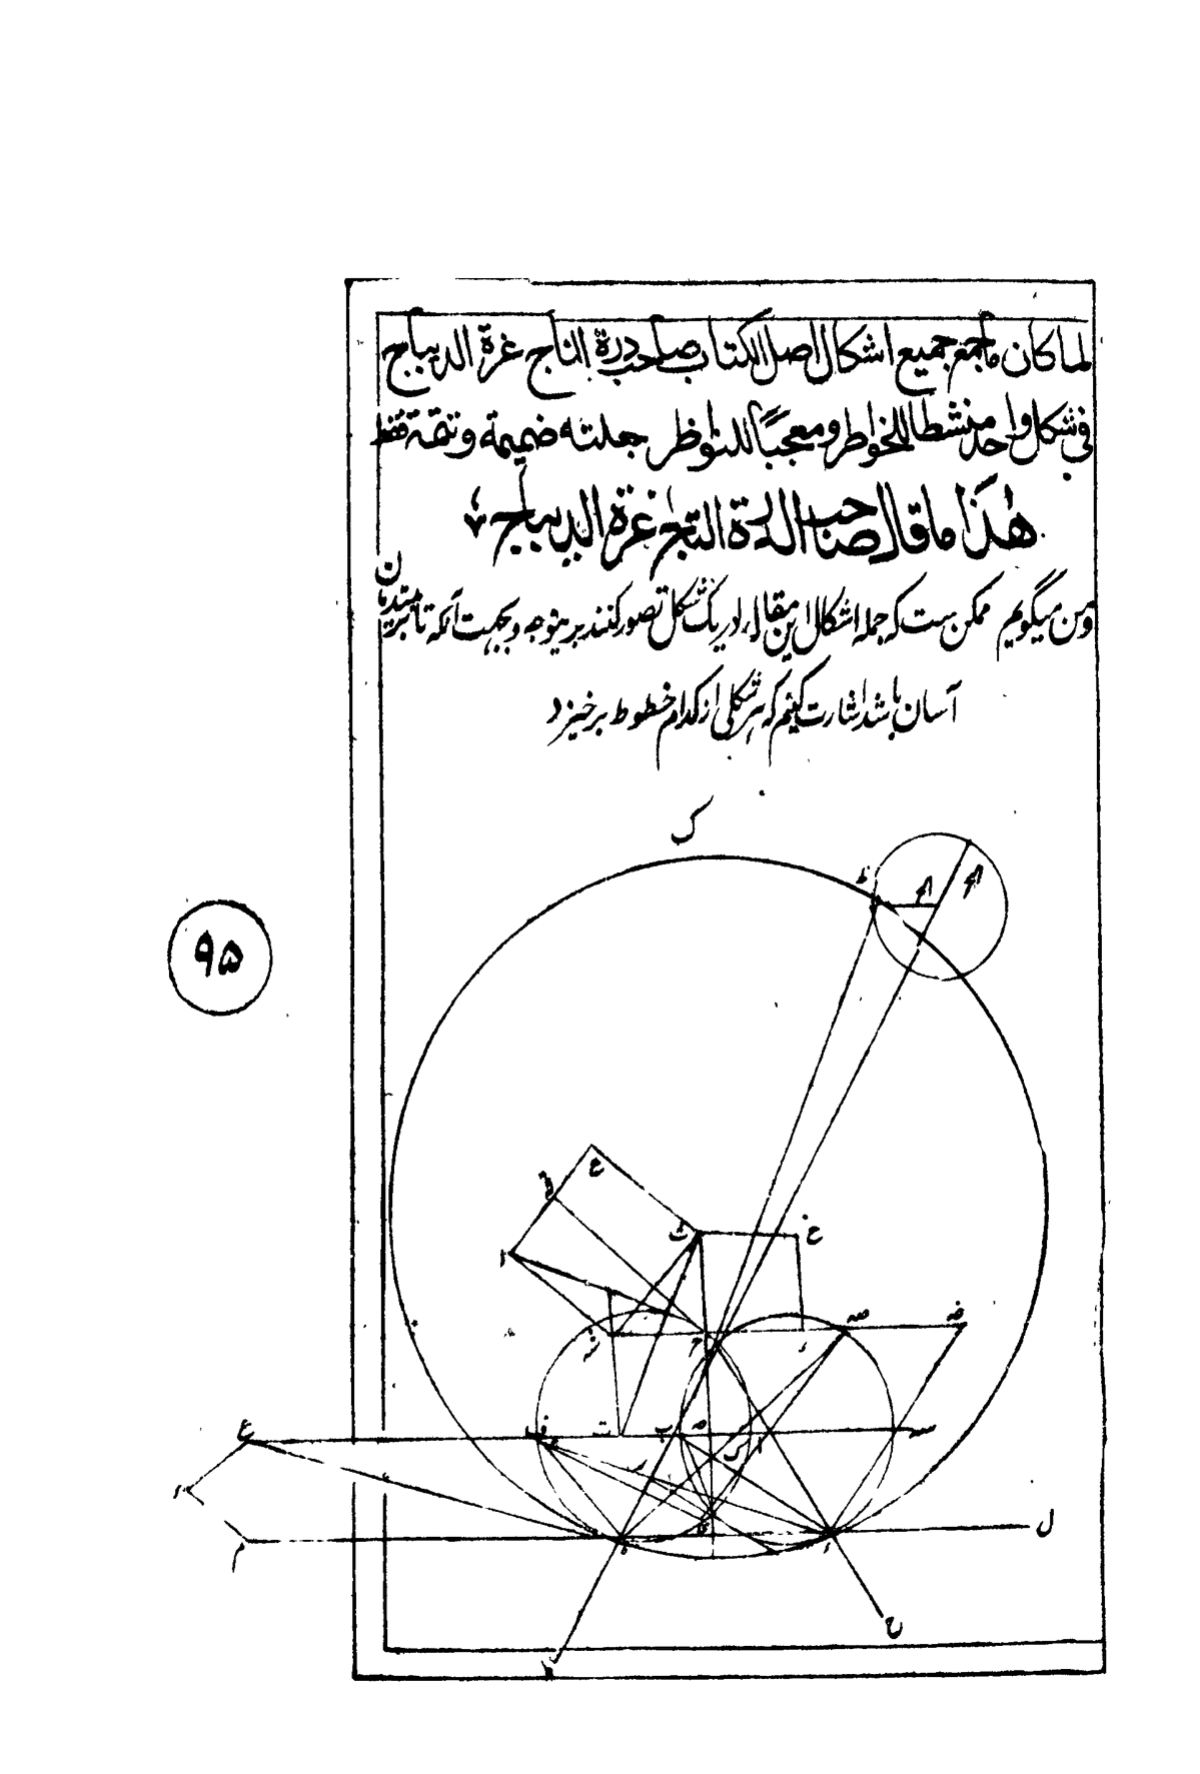 لما کان ما جمع جمیع اشکال اصل الکتاب صاحب درة التاج غرة الدیباج
فی شکل واحد منشطا للخواطر ومعجبًا للنواظر جعلته ضمیمة وتتمة فقط
هٰذا ما قال صاحب الدرة التاج غرة الدیباج
ومن میگویم ممکن ست که جمله اشکال این مقاله را در یک شکل تصور کنند برینوجه و بجهت آنکه تا بر مبتدیان
آسان باشد اشارت کنیم که هر شکلی از کدام خطوط برخیزد
ک
ط
ع
ق
ث
خ
ا
ح
صہ
ضہ
ع
ف
ت
ب
سہ
م
ل
ح
۹۵